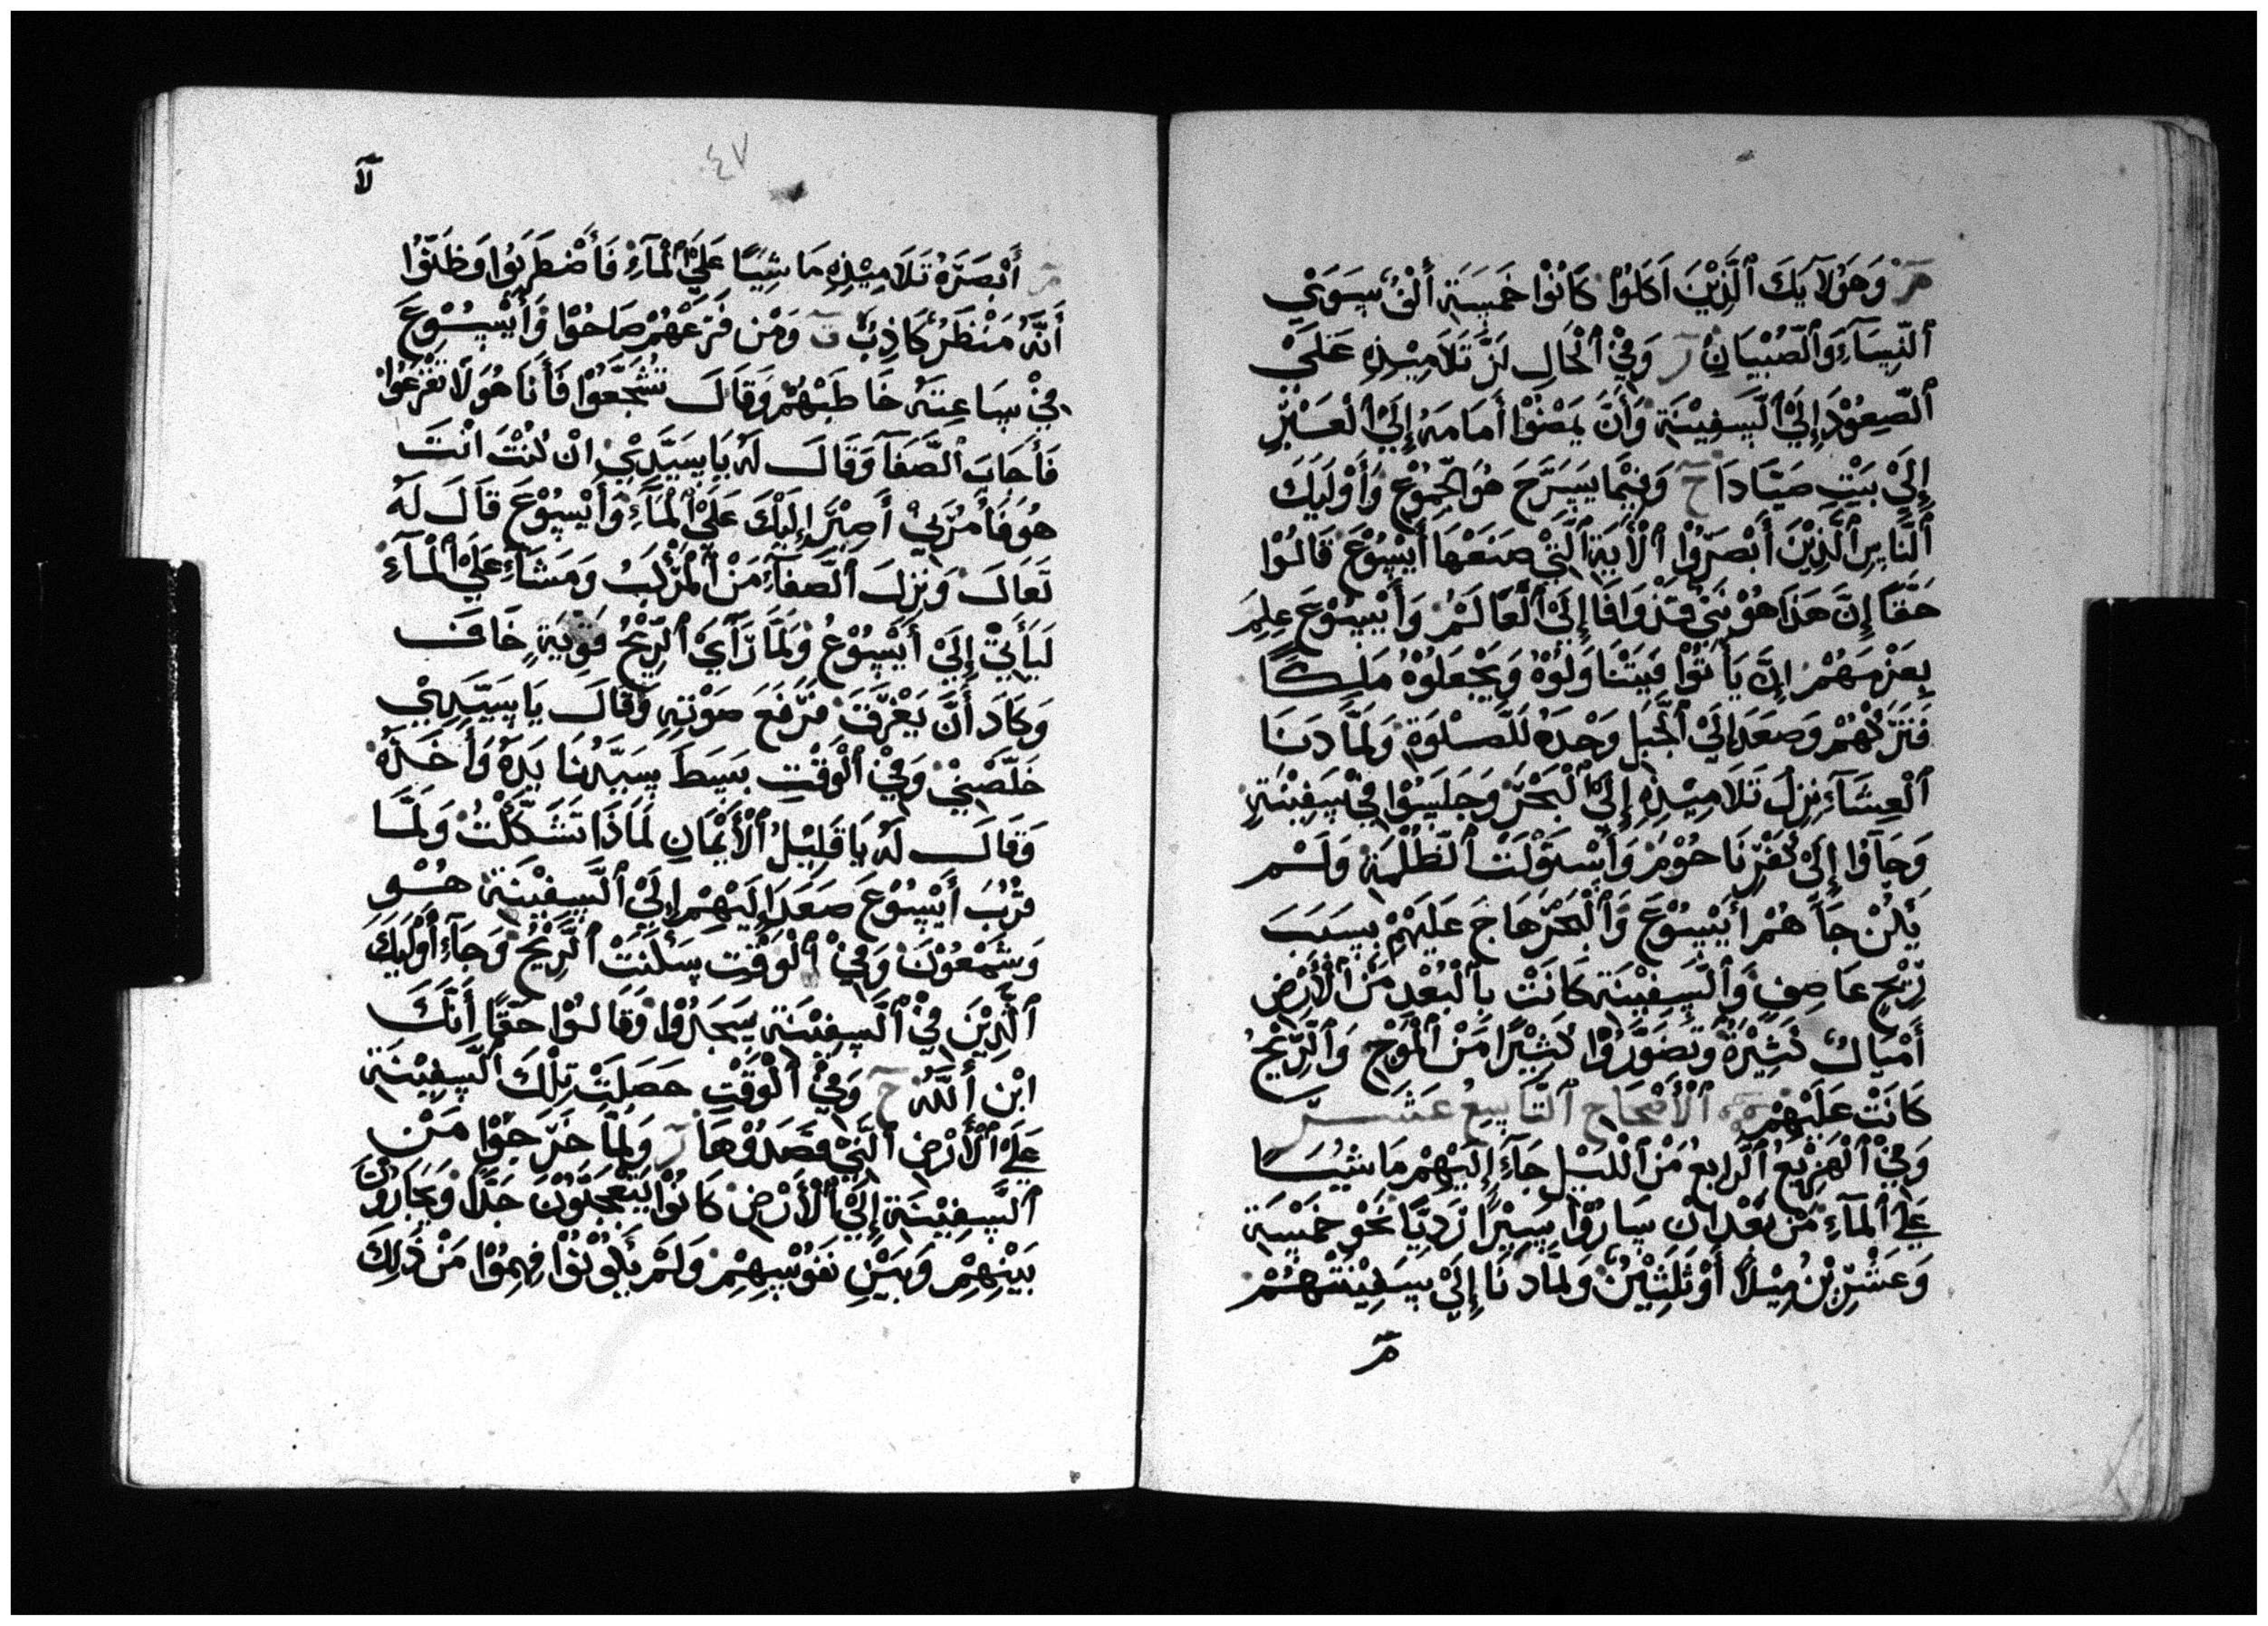 مر وَهَوُلَآيِكَ ٱلَّذِيْنَ اَكَلُوْا كَانُوْا خَمْسَةَ أَلْفٍ سِوَيْ
ٱلنِّسَآءِ وَٱلصِّبْيَانِ ر وَفِيْ ٱلْحَالِ لَزَّ تَلَامِيْذِهِ عَلَيْ
ٱلصِّعُوْدِ إِلَيْ ٱلسَّفِيْنَةِ وَأَنَّ يَمْضُوْا أَمَامَهُ إِلَيْ ٱلْعَبْرِ
إِلَيْ بَيْتِ صَيَّادَا ح وَبَيْنَمَا يُسَرِّحَ هُوَ ٱلجُمُوْعِ وَأُوْلَيِكَ
ٱلنَّاسِ ٱلَّذِيْنَ أَبْصَرُوْا ٱلْأَيَةَ ٱلَّتِيْ صَنَعَهَا أَيْسُوْعَ قَالُوْا
حَقًّا إِنَّ هَذَا هُوْ نَبِيْ قَدْ وَافَا إِلَيْ ٱلْعَالَمْ وَأَيْسُوْعَ عِلِمَ
بِعَزْمِهُمْ إِنَّ يَأْتُوْا فَيَتْنَاوَلُوْهُ وَيَجْعَلُوْهُ مَلِكًا
فَتَرَكْهُمْ وَصَعَدَ إِلَيْ ٱلْجَبَلِ وَحْدَهُ لَلصَّلْوَةِ وَلَمَّا دَنَا
ٱلْعِشَآءِ نِزِلَ تَلَامِيْذِهِ إِلَيْ ٱلْبَحْرَ وَجَلَسُوْا فِيْ سَفِيْنَةِ
وَجَآوْا إِلَيْ كَفَرْنَاحُوْمَ وَأَسْتَوْلَتْ ٱلظُّلْمَةِ وَلَمْ
يَكُنْ جَآهُمْ أَيْسُوْعَ وَٱلْبَحْرَ هَاجَ عَلَيْهِمْ بِسَبَبَ
رِيْحٍ عَاصِفٍ وَٱلسَّفِيْنَةِ كَانَتْ بِٱلْبُعْدِ مَنْ ٱلْأَرْضِ
أَمْيَالٌ كَثِيْرَةُ وَتَضَوَّرُوْا كَثِيْرًا مَنْ ٱلْمَوْجِ وَٱلرِّيْحُ
كَانَتْ عَلَيْهِمْ ٱلْأَصْحَاحِ ٱلتَّاسِعِ عَشَر
وَفِيْ ٱلْهَزِيْعِ ٱلرَّابِعِ مَنْ ٱلْلَيْلِ جَآءَ إِلَيْهِمْ مَاشِيًا
عَلَيْ ٱلْمَآءِ مَنْ بَعْدِ انْ سَارُوْا سَيْرًا رَدِيًّا نَحْوِ خَمْسَةِ
وَعَشْرِيْنَ مِيْلًا أَوْ ثَلَثِيْنَ وَلَمَّا دَنَا إِلَيْ سَفِيْنَتْهُمْ
مر
٤٧
لآ
مر أَبْصَرَهُ تَلَامِيْذِهِ مَاشِيًا عَلَيْ ٱلْمَآءِ فَأَضْطَرَبُوْا وَظَنُّوْا
أَنَّهُ مَنْظَرٌ كَاذِبٌ ٯ وَمَنْ فَزَعْهُمْ صَاحُوْا وَأَيْسُوْعَ
فِيْ سَاعِتَهُ خَاطَبَهُمْ وَقَالَ تُشَجَّعُوْا فَأَنَا هُوَ لَا تَفْزَعُوْا
فَأَجَابَ ٱلصَّفَآ وَقَالَ لَهُ يَا سَيِّدِيْ انْ كُنْتَ انْتَ
هُوَ فَأَمُرْنِيْ أَصِيْرَ إِلَيْكَ عَلَيْ ٱلْمَآءِ وَأَيْسُوْعَ قَالَ لَهُ
تَعَالَ وَنِزِلَ ٱلصَّفَآءِ مَنْ ٱلْمَرْكَبُ وَمَشَآءِ عَلَيْ ٱلْمَآءِ
لَيَأْتِيْ إِلَيْ أَيْسُوْعُ وَلَمَّا رَأَيْ ٱلرِّيْحُ قَوِيَةٍ خَافَ
وَكَادَ أَنَّ يَغْرَقَ فَرَفَعَ صَوْتِهِ وَقَالَ يَا سَيِّدِيْ
خَلِّصْنِيْ وَفِيْ ٱلْوَقْتِ بَسَطَ سَيِّدُنَا يَدَهُ وَأَخَذَهُ
وَقَالَ لَهُ يَا قَلِيْلُ ٱلْأَيْمَانِ لَمَاذَا تَشَكَّكْتَ وَلَمَّا
قَرُبَ أَيْسُوْعَ صَعَدَ إِلَيْهِمْ إِلَيْ ٱلسَّفِيْنَةِ هُوْ
وَشَمْعُوْنَ وَفِيْ ٱلْوَقْتِ سَكَنَتْ ٱلرِّيْحُ وَجَآءَ أُوْلَيِكَ
ٱلَّذِيْنَ فِيْ ٱلسَّفِيْنَةِ سَجَدُوْا وَقَالُوْا حَقًّا أَنَّكَ
ابْنِ أَللَّهُ ح وَفِيْ ٱلْوَقْتِ حَصَلَتْ تِلْكَ ٱلسَّفِيْنَةِ
عَلَيْ ٱلْأَرْضِ ٱلَّتِيْ قَصَدُوْهَا ر وَلَمَّا خَرَجَوْا مَنْ
ٱلسَّفِيْنَةِ إِلَيْ ٱلْأَرْضِ كَانُوْا يَتَعَجَّبُوْنَ جَدًّا وَيَحَارُوْنَ
بَيْنِهِمْ وَبَيْنِ نَفُوْسِهِمْ وَلَمْ يَكُوْنُوْا فِهِمُوْا مَنْ ذَلِكَ